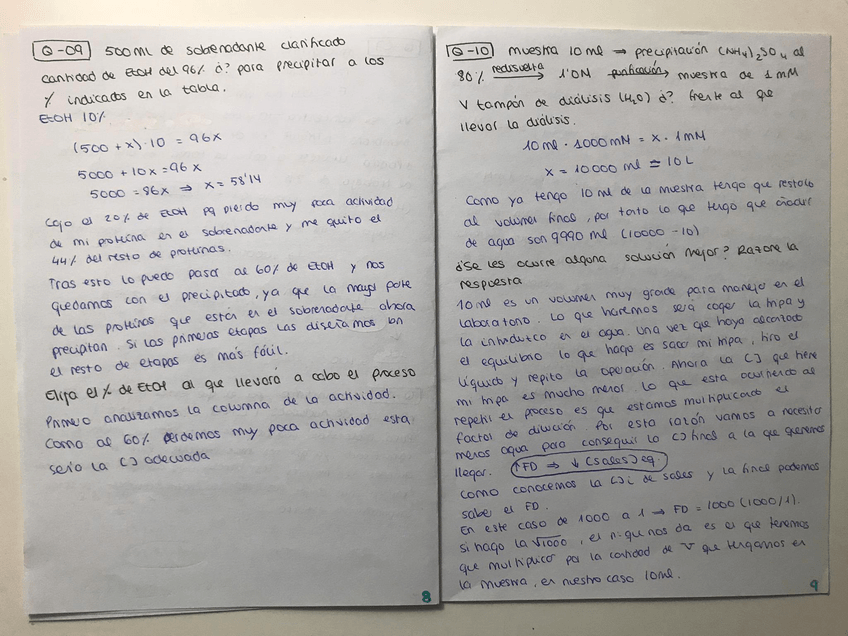 Q-09 500 ml de sobrenadante clarificado
cantidad de EtOH del 96% ¿? para precipitar a los
% indicados en la tabla.
EtOH 10%
(500 + x) · 10 = 96x
5000 + 10x = 96x
5000 = 86x ⇒ x = 58'14
Cojo el 20% de EtOH pq pierdo muy poca actividad
de mi proteína en el sobrenadante y me quito el
44% del resto de proteínas.
Tras esto lo puedo pasar al 60% de EtOH y nos
quedamos con el precipitado, ya que la mayor parte
de las proteínas que están en el sobrenadante ahora
precipitan. Si las primeras etapas las diseñamos bn
el resto de etapas es más fácil.
Elija el % de EtOH al que llevará a cabo el proceso
Primero analizamos la columna de la actividad.
Como al 60% perdemos muy poca actividad esta
sería la [] adecuada
8
Q-10 muestra 10 ml → precipitación (NH4)2SO4 al
80% redisuelta → 1'0N purificación → muestra de 1 mM
V tampón de diálisis (H2O) ¿? frente al que
llevar la diálisis.
10 ml · 1000 mM = x · 1 mM
x = 10000 ml = 10 L
Como ya tengo 10 ml de la muestra tengo que restarlo
al volumen final, por tanto lo que tengo que añadir
de agua son 9990 ml (10000 - 10)
¿Se les ocurre alguna solución mejor? Razone la
respuesta
10 ml es un volumen muy grande para manejo en el
laboratorio. Lo que haremos será coger la tripa y
la introduzco en el agua. Una vez que haya alcanzado
el equilibrio lo que hago es sacar mi tripa, tiro el
líquido y repito la operación. Ahora la [] que tiene
mi tripa es mucho menor. Lo que esta ocurriendo al
repetir el proceso es que estamos multiplicado el
factor de dilución. Por esta razón vamos a necesitar
menos agua para conseguir la [] final a la que queremos
llegar. ↑FD ⇒ ↓[sales] eq.
Como conocemos la []i de sales y la final podemos
saber el FD.
En este caso de 1000 a 1 ⇒ FD = 1000 (1000/1).
si hago la √1000, el nº que nos da es el que tenemos
que multiplicar por la cantidad de V que tengamos en
la muestra, en nuestro caso 10 ml.
9